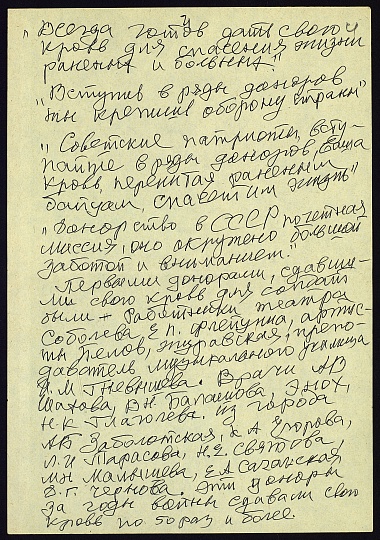 "Всегда готов дать свою
кровь для спасения жизни
раненых и больных".
"Вступив в ряды доноров
мы крепим оборону страны"
"Советские патриоты, всту-
пайте в ряды доноров ваша
кровь, перелитая раненым
бойцам, спасет им жизнь"
"Донорство в СССР почетная
миссия, оно окружено большой
заботой и вниманием."
Первыми донорами, сдавши-
ми свою кровь для солдат
были - работники театра
Соболева, Е.П. артис-
ты Пелов, Журавская, препо-
даватель музыкального училища
М Гневышева. Врачи АВ
Шахова, ВН Балашова, Энох,
Н.К из города
АБ Заболотская, А Егорова,
Л.И Тарасова, Н.Е. Святова,
МН Малышева, ЕА
В.Г. Чернова. Эти доноры
за годы войны сдавали свою
кровь по 50 раз и более.